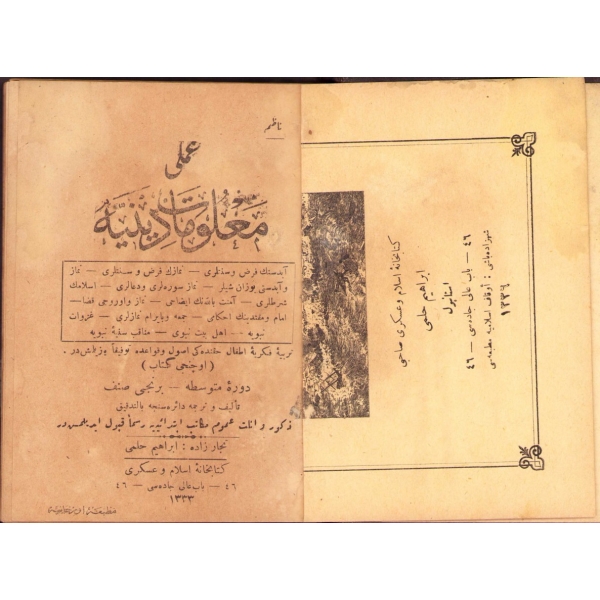 ناظم
عملی
معلومات دینیه
آبدستك فرض و سنتلری — نمازك فرض و سنتلری — نماز
و آبدستی بوزان شیلر — نماز سوره‌لری و دعالری — اسلامك
شرطلری — آمنت باللهك ایضاحی — نماز و اوروجی قضا —
امام و مقتدینك احكامی — جمعه و بایرام نمازلری — غزوات
نبویه — اهل بیت نبوی — مناقب سنیهٔ نبویه
تربیهٔ فكریهٔ اطفال حقنده‌كی اصول و قواعده توفیقاً یازلمشدر .
( اوچنجی كتاب )
دورهٔ متوسطه — برنجی صنف
تألیف و ترجمه دائره‌سنجه بالتدقیق
ذكور و اناث عموم مكاتب ابتدائیه‌ده رسماً قبول ایدیلمشدر
نجار زاده : ابراهیم حلمی
كتابخانهٔ اسلام و عسكری
٤٦ — باب عالی جاده‌سی — ٤٦
١٣٣٣
كتابخانهٔ اسلام و عسكری صاحبی
ابراهیم حلمی
استانبول
٤٦ — باب عالی جاده‌سی — ٤٦
شهزاده‌باشی : اوقاف اسلامیه مطبعه‌سی
١٣٣٦